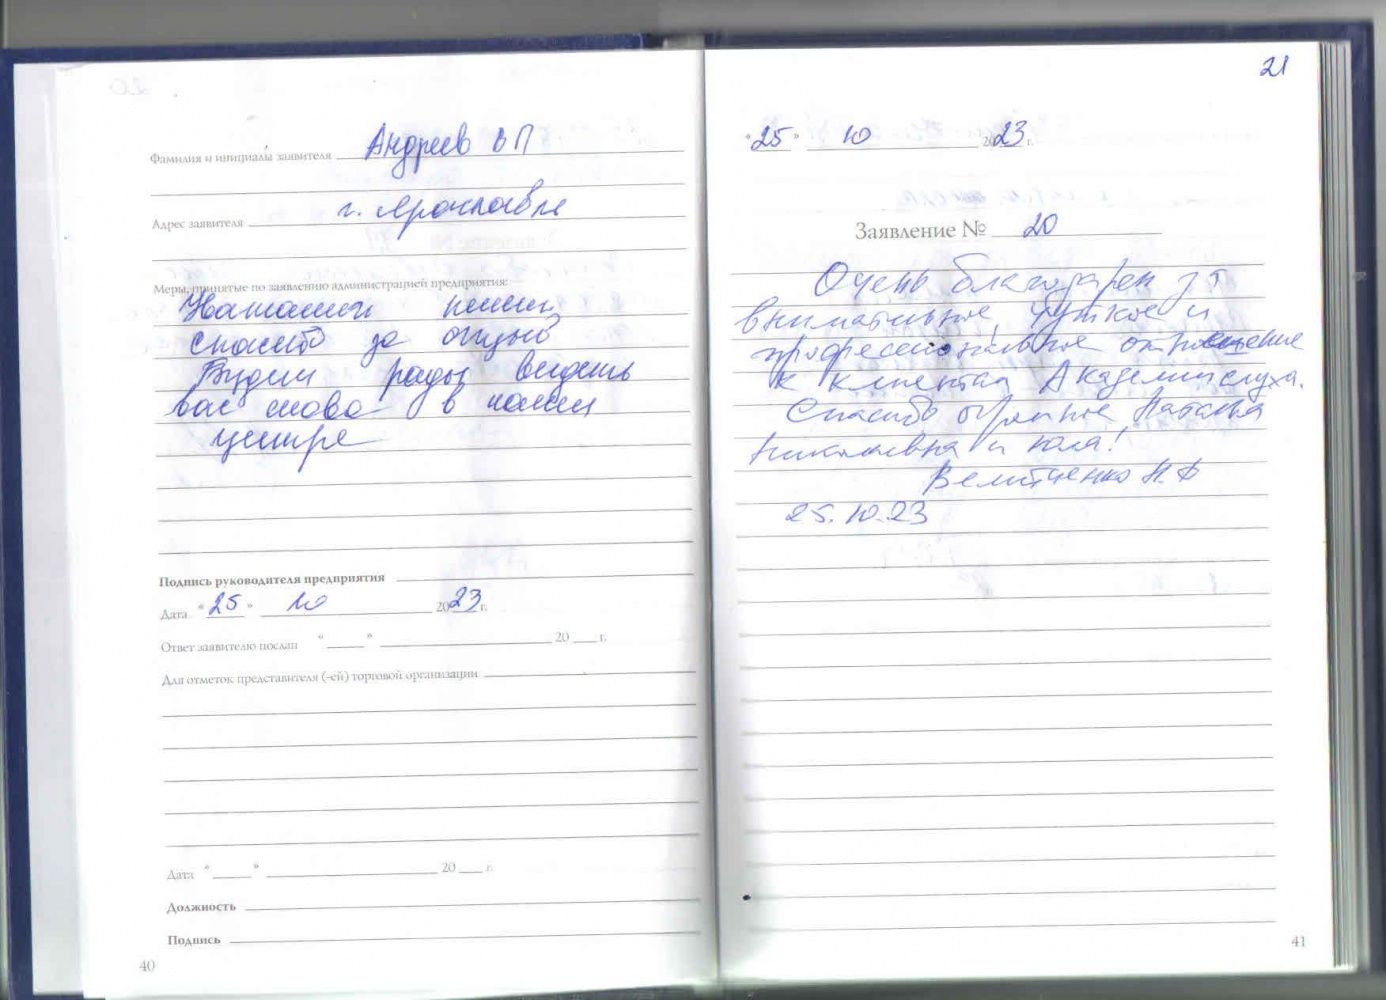 Фамилия и инициалы заявителя Андреев В П
Адрес заявителя г. Ярославль
Меры, принятые по заявлению администрацией предприятия:
спасибо за отзыв
Будем рады видеть
вас снова в нашем
центре
Подпись руководителя предприятия
Дата "25" 10 2023 г.
Ответ заявителю послан " " 20 г.
Для отметок представителя (-ей) торговой организации
Дата " " 20 г.
Должность
Подпись
40
21
"25" 10 2023 г.
Заявление № 20
Очень благодарен за
внимательное, чуткое и
профессиональное отношение
к клиентам Академии слуха.
Спасибо огромное Наталья
Николаевна и Юля!
25.10.23
41